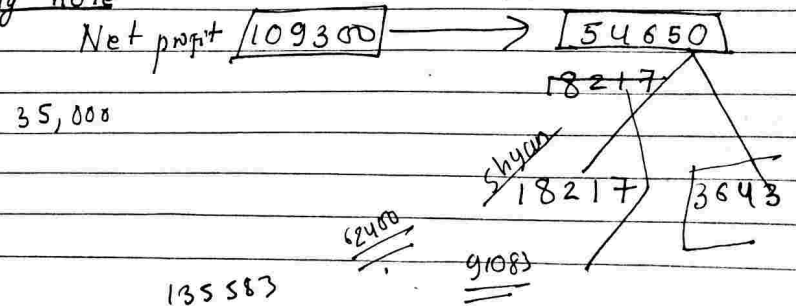 note
Net profit 109300 → 54650
18217
35,000
Shyam
18217 3643
62400
91083
135583